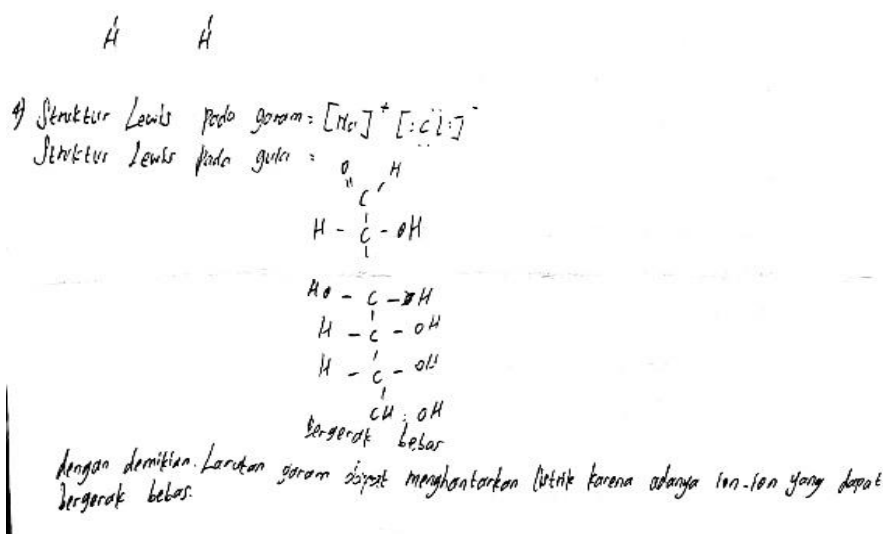 H H
4) Struktur Lewis pada garam = [Na]⁺ [:Cl:]⁻
Struktur Lewis pada gula =
O H
C
H - C - OH
HO - C - H
H - C - OH
H - C - OH
CH₂OH
bergerak bebas
dengan demikian. Larutan garam dapat menghantarkan listrik karena adanya ion-ion yang dapat
bergerak bebas.